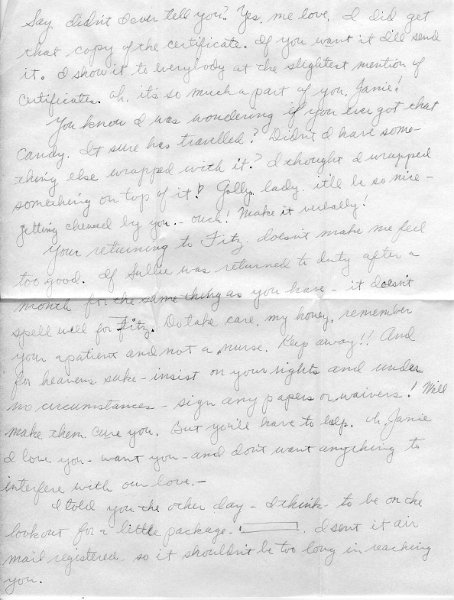 Say, didn't I ever tell you? Yes, me love, I did get
that copy of the certificate. If you want it I'll send
it. I show it to everybody at the slightest mention of
certificates. Oh, it's so much a part of you, Janie!
You know I was wondering if you ever got that
candy. It sure has travelled! Didn't I have some-
thing else wrapped with it? I thought I wrapped
something on top of it? Golly, lady it'll be so nice -
getting chewed by you. - ouch! Make it verbally!
Your returning to Fitz doesn't make me feel
too good. If Sallie was returned to duty after a
month for the same thing as you have - it doesn't
spell well for Fitz. Do take care, my honey, remember
your a patient and not a nurse. Keep away!! And
for heavens sake - insist on your rights and under
no circumstances - sign any papers or waivers! Will
make them cure you. But you'll have to help. Oh, Janie
I love you - want you - and don't want anything to
interfere with our love. -
I told you the other day - I think - to be on the
lookout for a little package. I sent it air
mail registered - so it shouldn't be too long in reaching
you.